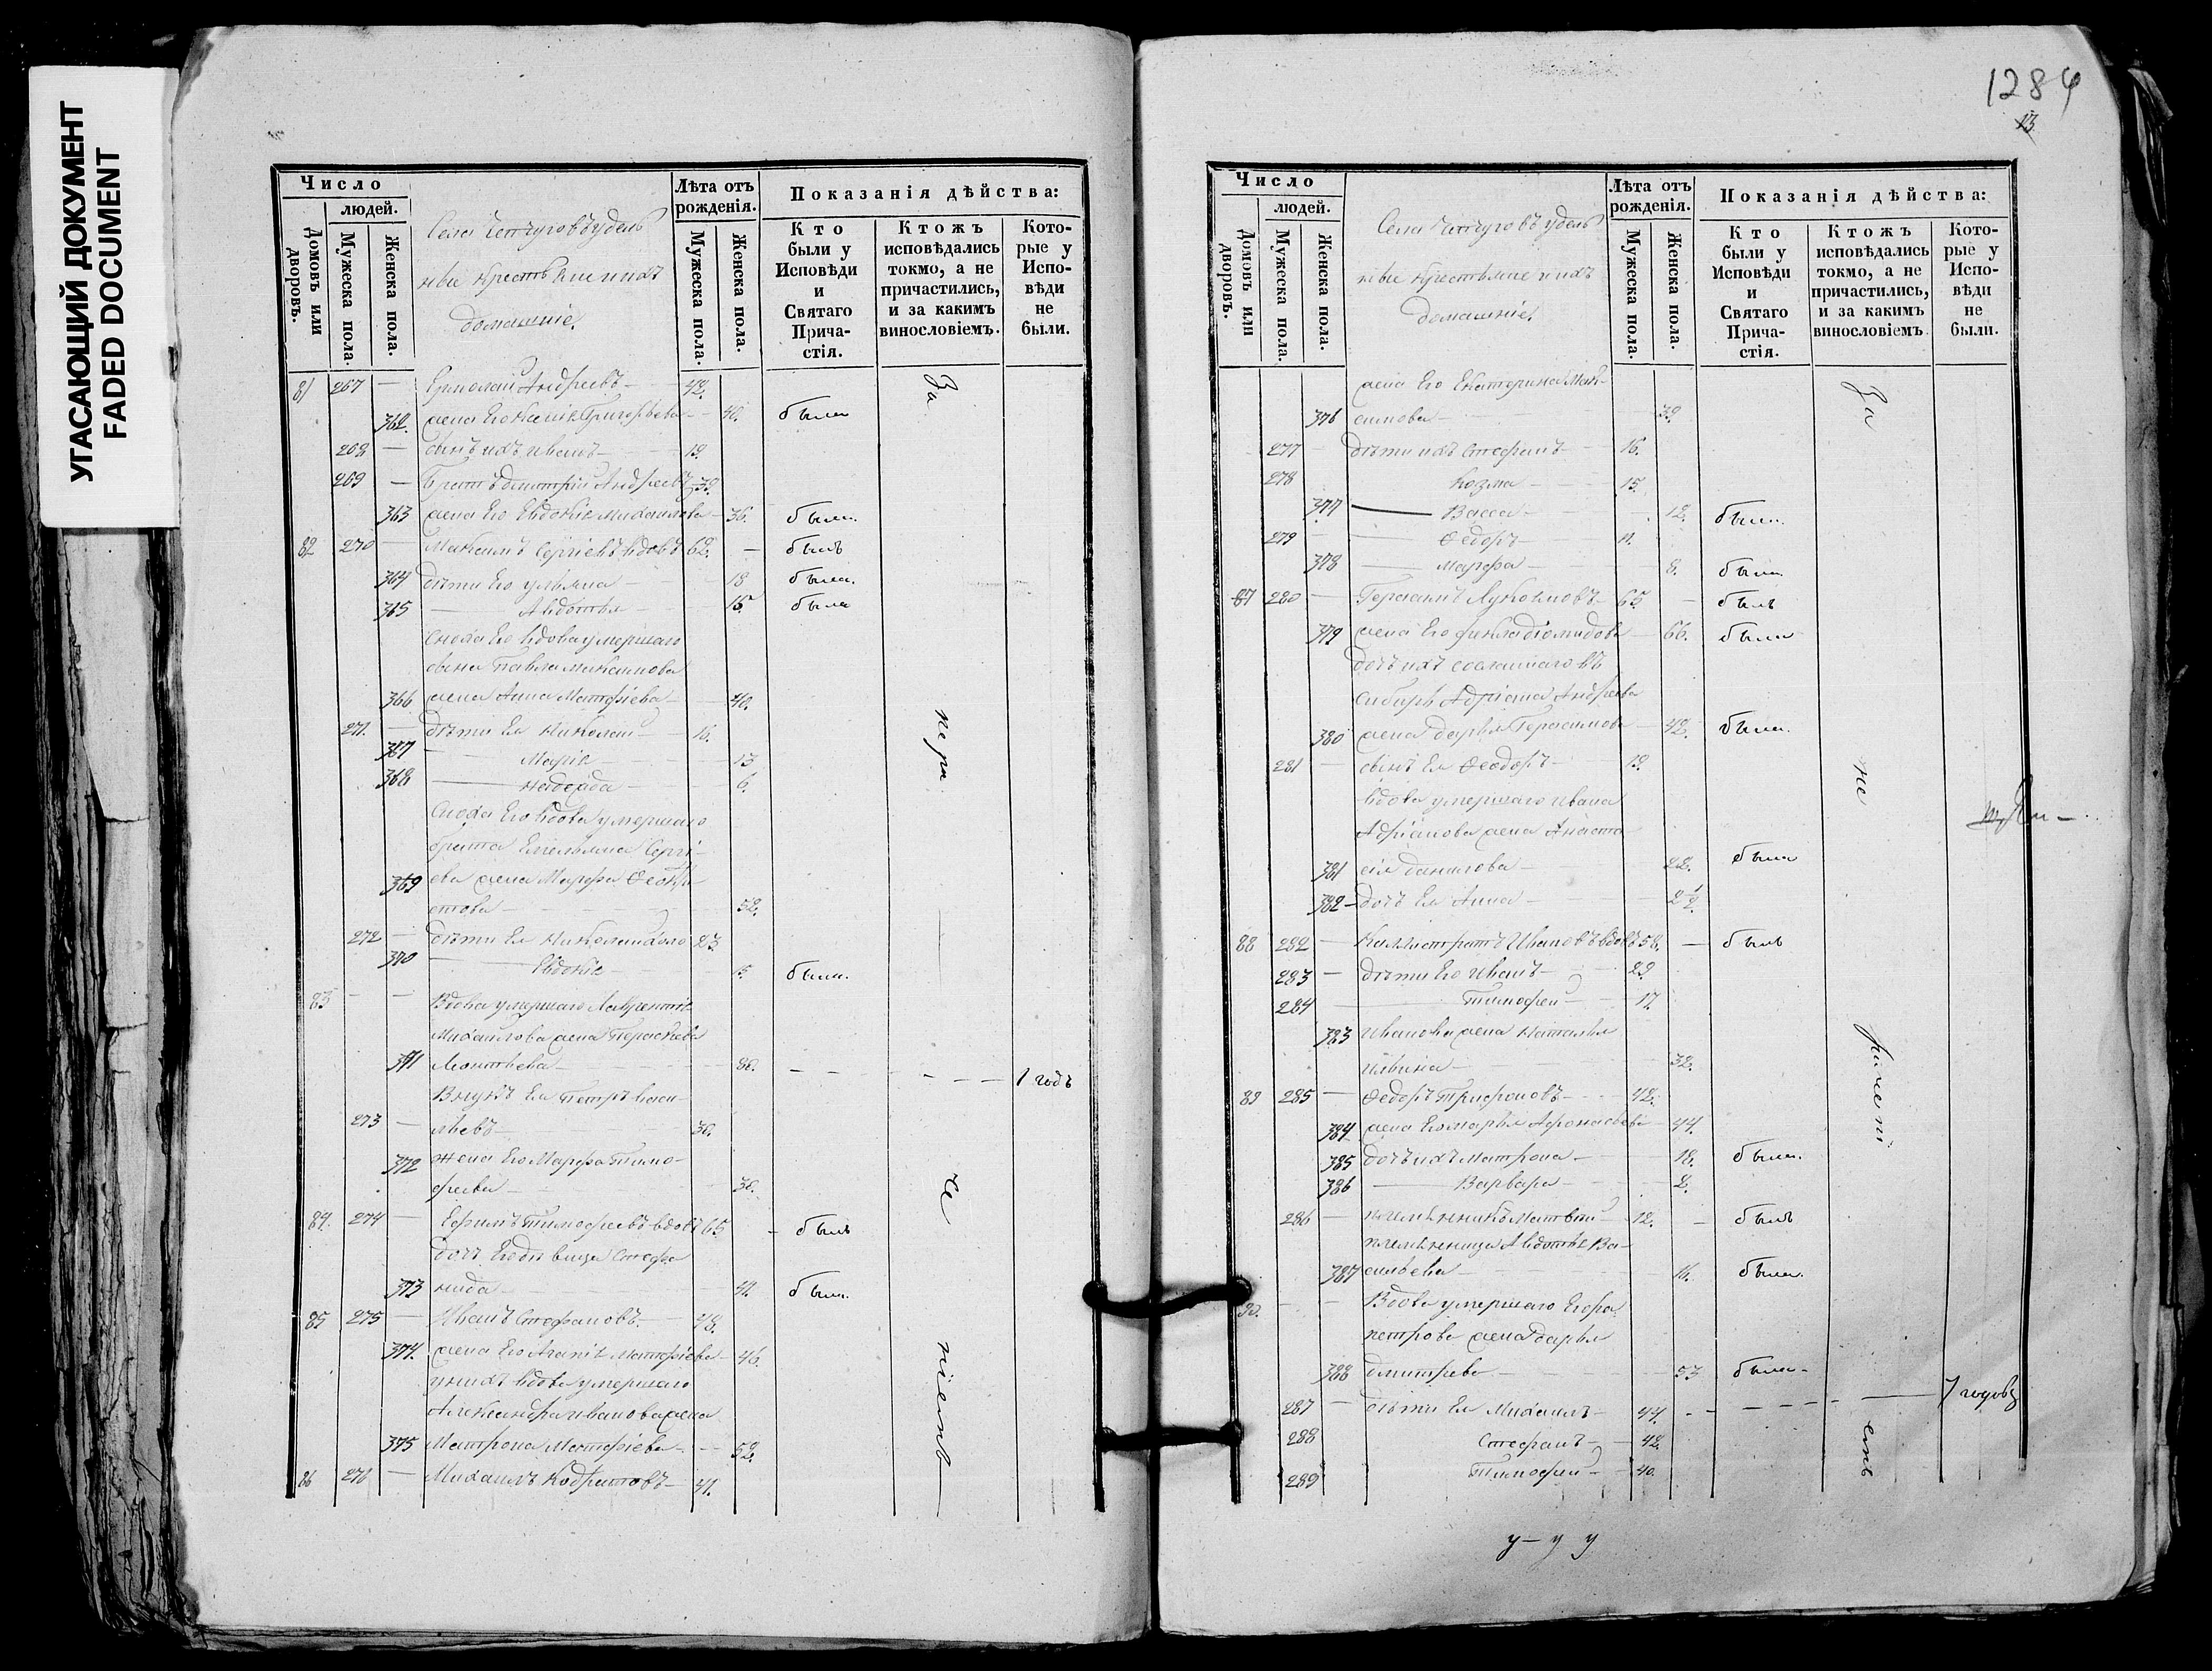 УГАСАЮЩИЙ ДОКУМЕНТ
FADED DOCUMENT
Число
людей.
Домовъ или дворовъ.
Мужеска пола.
Женска пола.
Села удель
ные крестьяне и ихъ
домашніе.
Лѣта отъ рожденія.
Мужеска пола.
Женска пола.
Показанія дѣйства:
Кто были у Исповѣди и Святаго Причастія.
Ктожъ исповѣдались токмо, а не причастились, и за какимъ винословіемъ.
Которые у Исповѣди не были.
81 267 — Ермолай Андреевъ — 42.
362. жена Его Ксенія Григорьева — 40. была
268 — сынъ ихъ Иванъ — 19.
269 — Братъ Дмитрій Андреевъ — 39.
363 жена Его Евдокія Михаилова — 36. была.
82 270 — Максимъ Сергіевъ вдовъ 62. — былъ
364 дѣти Его Ульяна — 18 была.
365 — Авдотья — 15 была
Сноха Его вдова умершаго
сына Павла Максимова
366 жена Анна Матфіева — 40.
271. — дѣти Ея Николай — 16.
367 — Марія — 13
368 — Надежда — 6.
Сноха Его вдова умершаго
брата Емельяна Сергі-
369 ева жена Марфа Ѳеокти-
стова — 52.
272 — дѣти Ея Николай 23
370 — Евдокія — были.
83 — — Вдова умершаго Лаврентія
Михаилова жена Параскева
371 Леонтьева — 80. — — — — 1 годъ
Внукъ Ея Петръ Васи-
273 — льевъ — 30.
372 жена Его Марфа Тимо-
феева — 30.
84. 274 — Ефимъ Тимофеевъ вдовъ 65. — былъ
дочь Его дѣвица Стефа
373 нида — 41. была.
85 275 — Иванъ Стефановъ — 48.
374. жена Его Агапія Матфіева — 46.
у нихъ вдова умершаго
Александра Иванова жена
375 Матрона Матфіева — 52.
86 276 — Михаилъ Кодратовъ — 41.
За
нера
че
ніемъ
1284
13
Число
людей.
Домовъ или дворовъ.
Мужеска пола.
Женска пола.
Села удель
ные крестьяне и ихъ
домашніе.
Лѣта отъ рожденія.
Мужеска пола.
Женска пола.
Показанія дѣйства:
Кто были у Исповѣди и Святаго Причастія.
Ктожъ исповѣдались токмо, а не причастились, и за какимъ винословіемъ.
Которые у Исповѣди не были.
жена Его Екатерина Мак-
376 симова — 39.
277 — дѣти ихъ Стефанъ — 16.
278 Козма — 15.
377 — Васса — 12. были.
279 — Ѳедоръ — 11.
378 — Марфа — 8. была
87 280 — Герасимъ Лукояновъ — 65 — былъ
379 жена Его Фекла Діомидова — 66. была
дочь ихъ сосланнаго въ
Сибирь Адріана Андреева
380 жена Дарья Герасимова — 42. была.
281 — сынъ Ея Ѳеодоръ — 19.
вдова умершаго Ивана
Адріанова жена Анаста
381 сія Данилова — 22. была
382 — дочь Ея Анна — 2½.
88 282 — Каллистратъ Ивановъ вдовъ 58. — былъ
283 — дѣти Его Иванъ — 29.
284 — Тимофей — 17.
383 Иванова жена Наталья
Ильина — 32.
89 285 — Ѳедоръ Трифоновъ — 42.
384 жена Его Марья Афонасьева — 44.
385 дочь ихъ Матрона — 18. была.
386 — Варвара — 2.
286 — племянникъ Матвѣй — 12. — былъ
племянница Авдотья Ва-
387 сильева — 16. была.
90. — — Вдова умершаго Егора
Петрова жена Дарья
388 Дмитрева — 53 была —
287 — дѣти Ея Михаилъ — 44. — — — — 7 годовъ
288 Стефанъ — 42.
289 Тимофей — 40.
За
не
рачені
емъ
у — у у